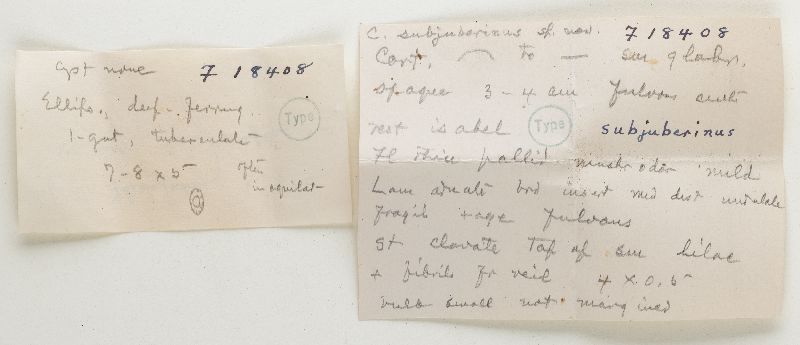 Cyst none 718408
Ellips., deep ferrug.
Type
1-gut, tuberculate
7-8 x 5 often
inaequilat-
C. subjuberinus sp. nov. 718408
Cort, to — sm. glabr.
3-4 cm fulvous
rest isabel Type subjuberinus
Fl thick pallid mushr odor mild
Lam adnate brd insert med dist undulate
Fragile fulvous
St clavate Top of sm lilac
+ fibrils fr veil 4 x 0.5
bulb small not margined